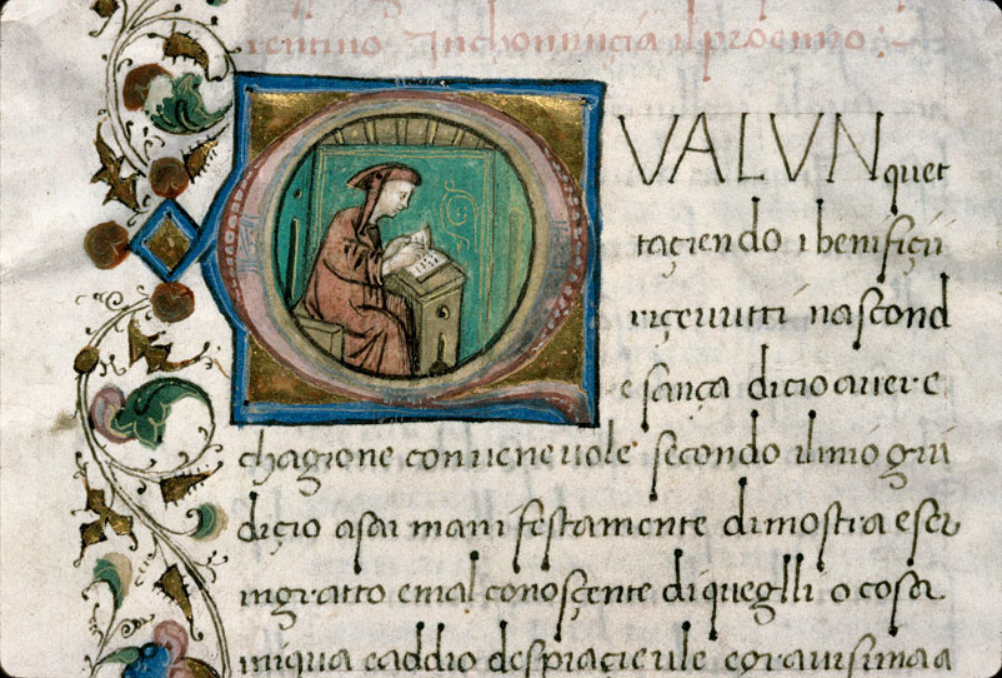 rentino Inchomincia il proemio
QUALUN quet
taciendo i benifiçii
riçeuutti nascond
e sança dicio auere
chagione conueneuole secondo il mio giu
diçio asai manifestamente dimostra eser
ingratto e mal conosçente di queglli o cosa
iniqua e addio despiaçieuile e grauisima a